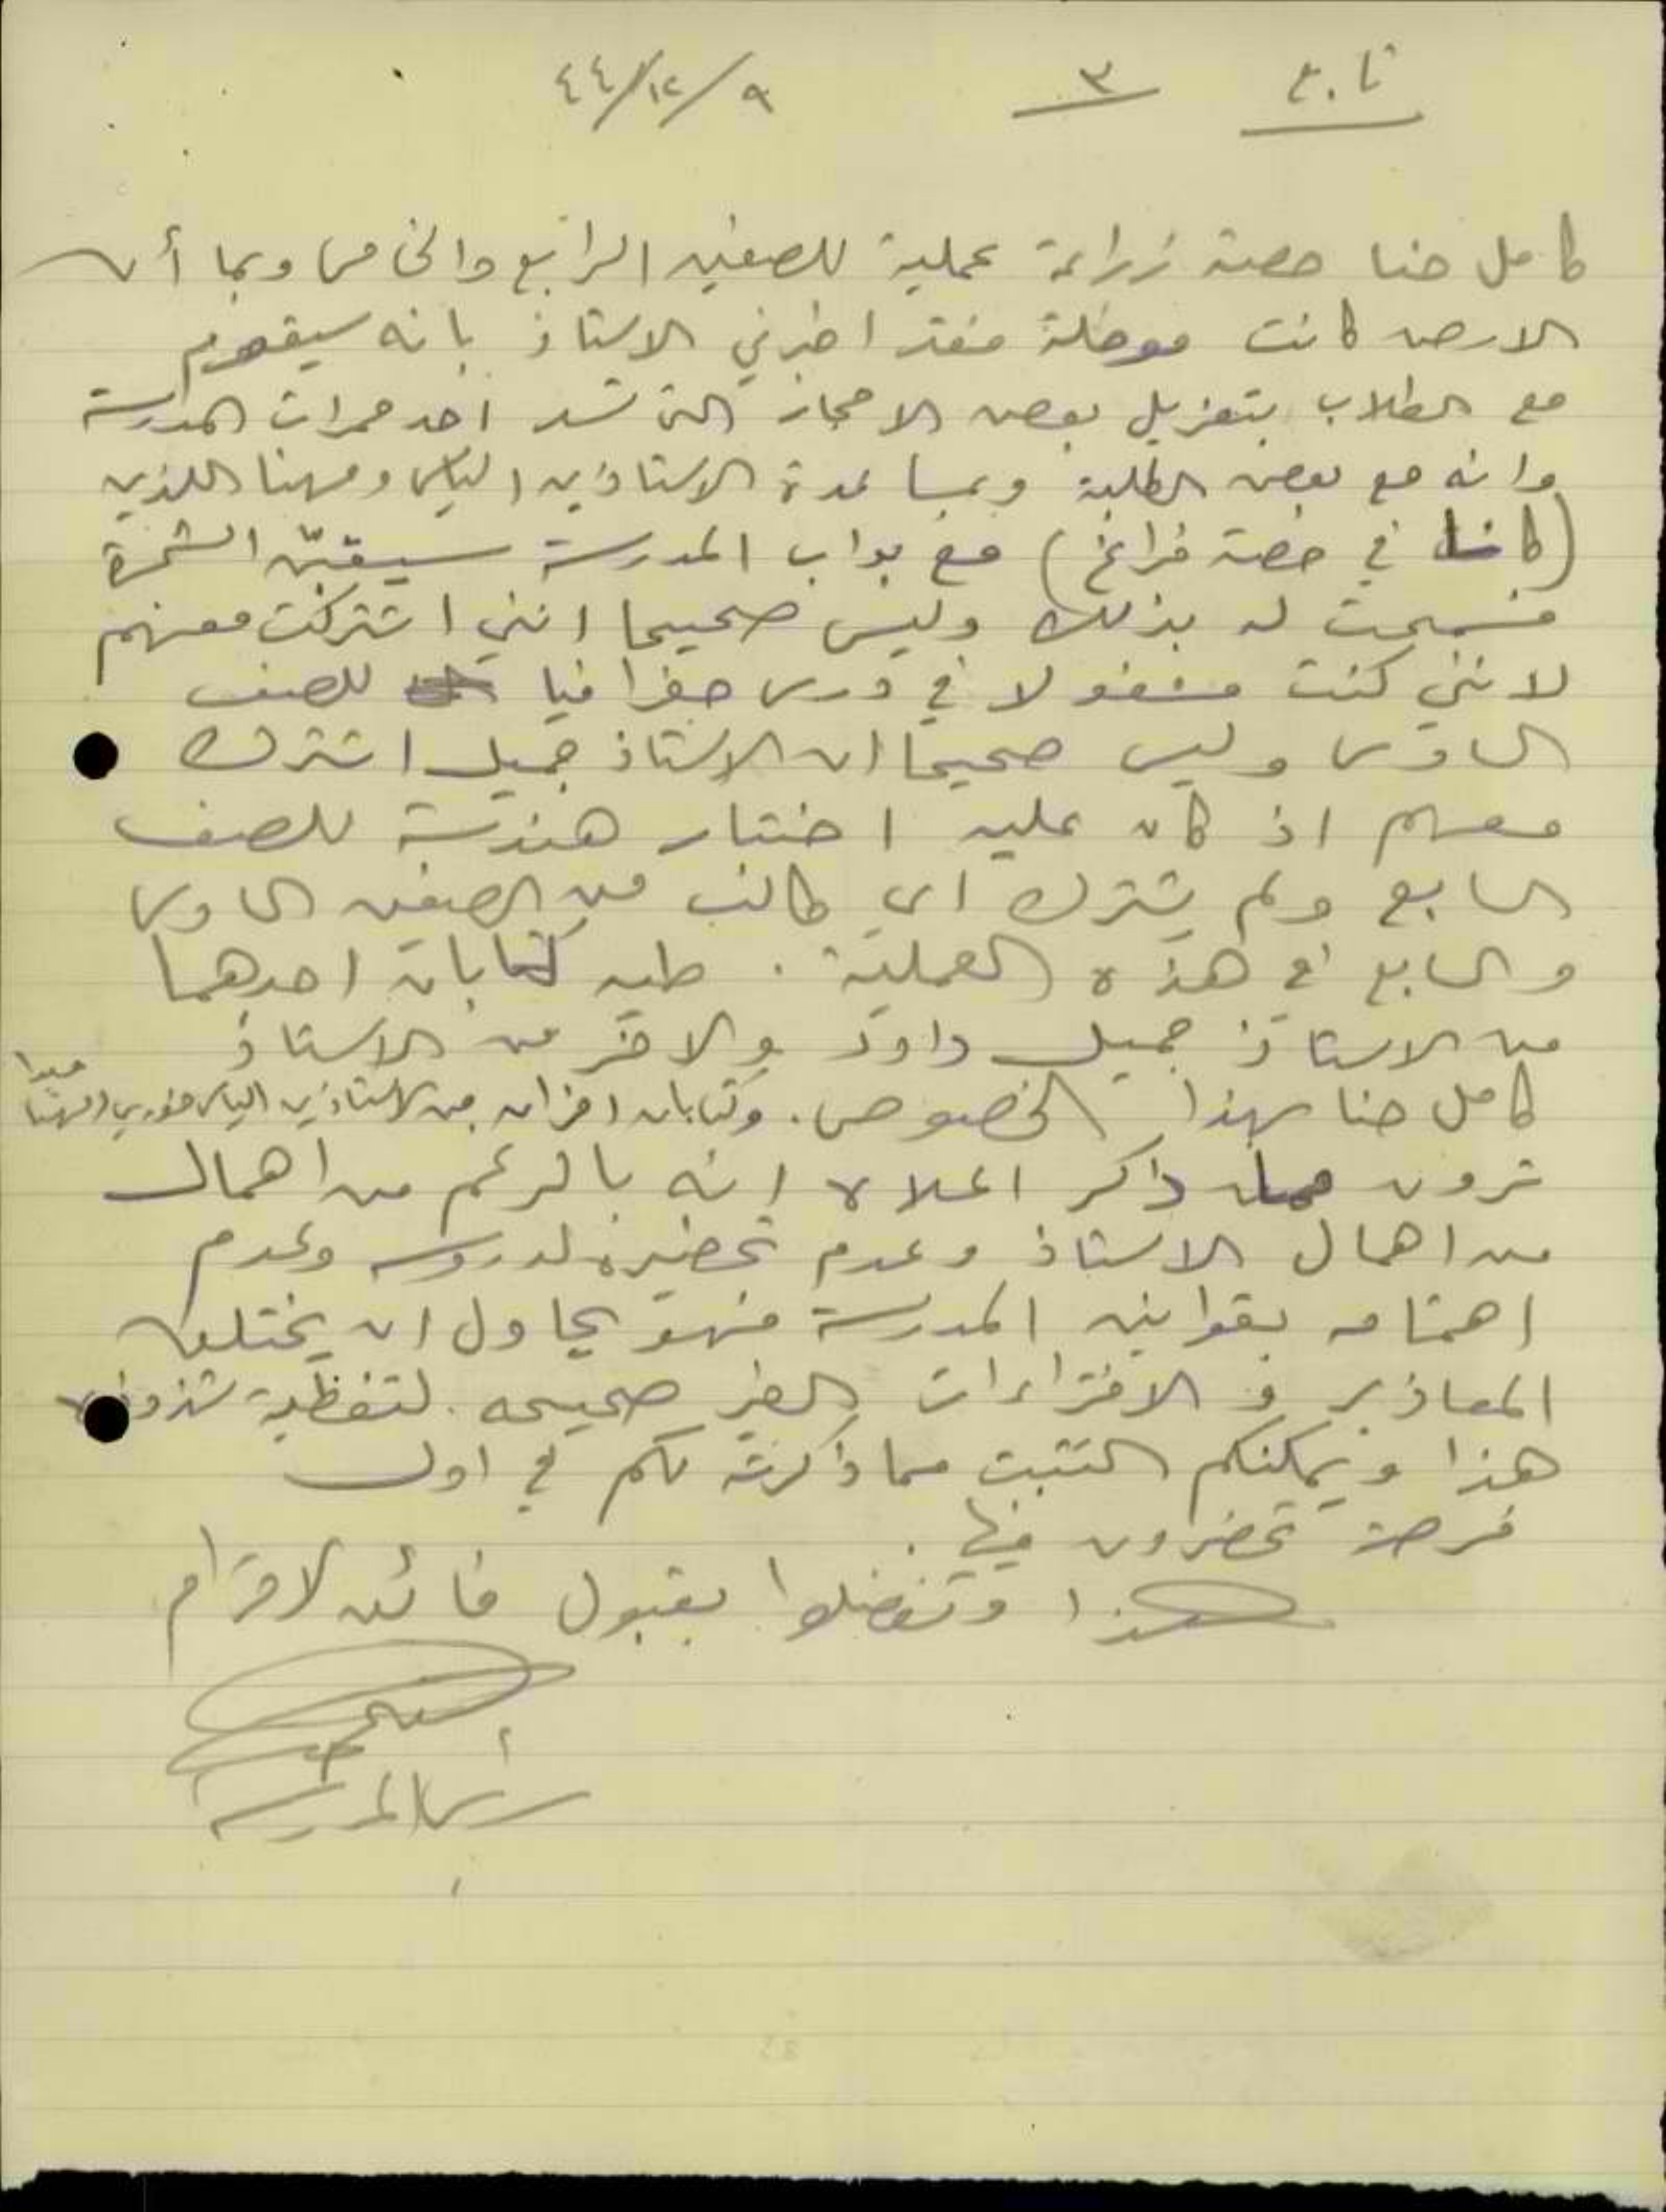 تابع ٣ ٩/١٢/٤٤
كامل حنا حصة زراعة عملية للصفين الرابع والخامس وبما أن
الارض كانت موحلة فقد اخبرني الاستاذ بانه سيقوم
مع الطلاب بتعزيل بعض الاحجار التي تسد احد ممرات المدرسة
وانه مع بعض الطلبة وبمساعدة الاستاذين الياس ومهنا اللذين
(كانا في حصة فراغ) مع بواب المدرسة الشجرة
فسمحت له بذلك وليس صحيحا انني اشتركت معهم
لانني كنت مشغولا في درس جغرافيا للصف
السادس وليس صحيحا ان الاستاذ جميل اشترك
معهم اذ كان عليه اختبار هندسة للصف
السابع ولم يشترك اي طالب من الصفين السادس
والسابع في هذه العملية. طيه كتابان احدهما
من الاستاذ جميل داود والاخر من الاستاذ
كامل حنا بهذا الخصوص. وكتابان اخران من الاستاذين الياس خوري و مهنا
ترون مما ذكر اعلاه انه بالرغم من اهمال
من اهمال الاستاذ وعدم تحضيره لدروسه وعدم
اهتمامه بقوانين المدرسة فهو يحاول ان يختلق
المعاذير و الافتراءات الغير صحيحه لتغطية شذوذه
هذا ويمكنكم التثبت مما ذكرته لكم في اول
فرصة تحضرون فيها.
هذا وتفضلوا بقبول فائق الاحترام
رئيس المدرسة